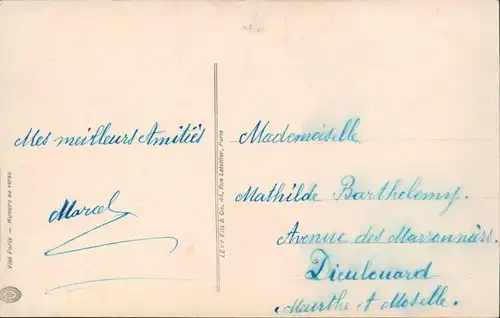 Mes meilleurs Amitiés
Marcel
Visé Paris — Numéro au verso
Fils & Cie, 44, Rue Letellier, Paris
Mademoiselle
Mathilde Barthelemy.
Avenue des Marronniers.
Dieulouard
Meurthe et Moselle.